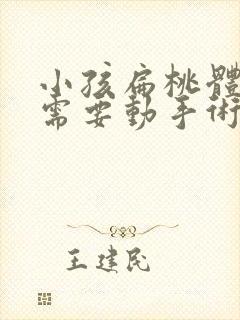 小孩扁桃體
需要動手術
王建民